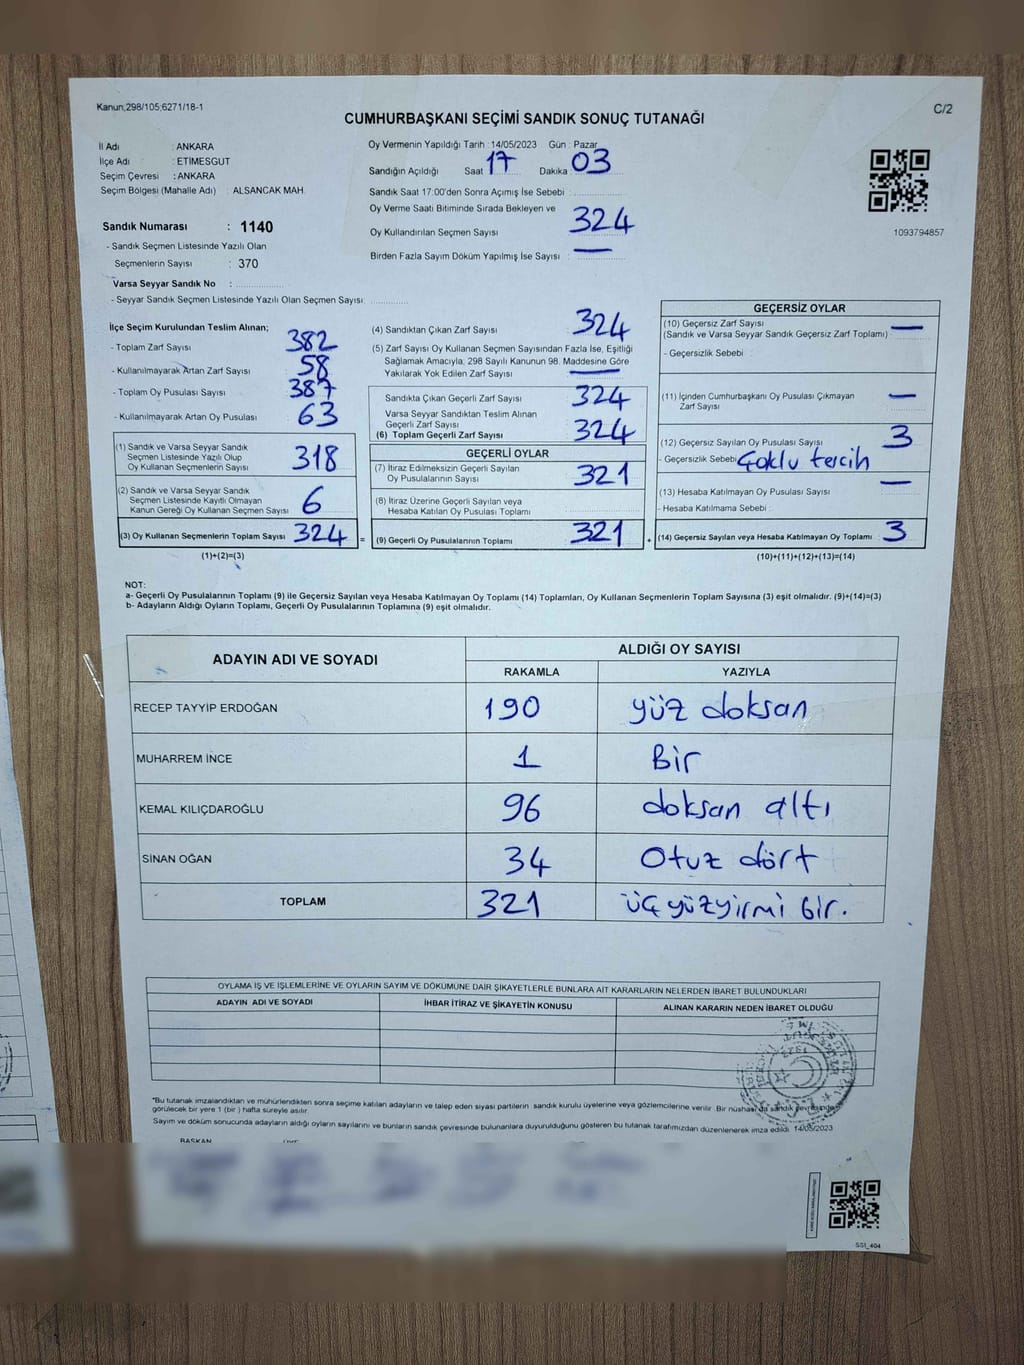 Kanun;298/105;6271/18-1
C/2
CUMHURBAŞKANI SEÇİMİ SANDIK SONUÇ TUTANAĞI
İl Adı : ANKARA
İlçe Adı : ETİMESGUT
Seçim Çevresi : ANKARA
Seçim Bölgesi (Mahalle Adı) : ALSANCAK MAH.
Sandık Numarası : 1140
- Sandık Seçmen Listesinde Yazılı Olan
Seçmenlerin Sayısı : 370
Varsa Seyyar Sandık No :
- Seyyar Sandık Seçmen Listesinde Yazılı Olan Seçmen Sayısı:
Oy Vermenin Yapıldığı Tarih : 14/05/2023 Gün : Pazar
Sandığın Açıldığı Saat 17 Dakika 03
Sandık Saat 17:00'den Sonra Açımış İse Sebebi :
Oy Verme Saati Bitiminde Sırada Bekleyen ve
Oy Kullandırılan Seçmen Sayısı 324
Birden Fazla Sayım Döküm Yapılmış İse Sayısı : —
1093794857
İlçe Seçim Kurulundan Teslim Alınan;
- Toplam Zarf Sayısı 382
- Kullanılmayarak Artan Zarf Sayısı 58
- Toplam Oy Pusulası Sayısı 387
- Kullanılmayarak Artan Oy Pusulası 63
(1) Sandık ve Varsa Seyyar Sandık
Seçmen Listesinde Yazılı Olup
Oy Kullanan Seçmenlerin Sayısı 318
(2) Sandık ve Varsa Seyyar Sandık
Seçmen Listesinde Kayıtlı Olmayan
Kanun Gereği Oy Kullanan Seçmen Sayısı 6
(3) Oy Kullanan Seçmenlerin Toplam Sayısı 324 =
(1)+(2)=(3)
(4) Sandıktan Çıkan Zarf Sayısı 324
(5) Zarf Sayısı Oy Kullanan Seçmen Sayısından Fazla İse, Eşitliği
Sağlamak Amacıyla, 298 Sayılı Kanunun 98. Maddesine Göre
Yakılarak Yok Edilen Zarf Sayısı —
Sandıkta Çıkan Geçerli Zarf Sayısı 324
Varsa Seyyar Sandıktan Teslim Alınan
Geçerli Zarf Sayısı
(6) Toplam Geçerli Zarf Sayısı 324
GEÇERLİ OYLAR
(7) İtiraz Edilmeksizin Geçerli Sayılan
Oy Pusulalarının Sayısı 321
(8) İtiraz Üzerine Geçerli Sayılan veya
Hesaba Katılan Oy Pusulası Toplamı
(9) Geçerli Oy Pusulalarının Toplamı 321 +
GEÇERSİZ OYLAR
(10) Geçersiz Zarf Sayısı
(Sandık ve Varsa Seyyar Sandık Geçersiz Zarf Toplamı) —
- Geçersizlik Sebebi :
(11) İçinden Cumhurbaşkanı Oy Pusulası Çıkmayan
Zarf Sayısı —
(12) Geçersiz Sayılan Oy Pusulası Sayısı 3
- Geçersizlik Sebebi Çoklu tercih
(13) Hesaba Katılmayan Oy Pusulası Sayısı —
- Hesaba Katılmama Sebebi :
(14) Geçersiz Sayılan veya Hesaba Katılmayan Oy Toplamı 3
(10)+(11)+(12)+(13)=(14)
NOT:
a- Geçerli Oy Pusulalarının Toplamı (9) ile Geçersiz Sayılan veya Hesaba Katılmayan Oy Toplamı (14) Toplamları, Oy Kullanan Seçmenlerin Toplam Sayısına (3) eşit olmalıdır. (9)+(14)=(3)
b- Adayların Aldığı Oyların Toplamı, Geçerli Oy Pusulalarının Toplamına (9) eşit olmalıdır.
ADAYIN ADI VE SOYADI
ALDIĞI OY SAYISI
RAKAMLA YAZIYLA
RECEP TAYYİP ERDOĞAN 190 yüz doksan
MUHARREM İNCE 1 Bir
KEMAL KILIÇDAROĞLU 96 doksan altı
SİNAN OĞAN 34 Otuz dört
TOPLAM 321 üçyüzyirmi bir.
OYLAMA İŞ VE İŞLEMLERİNE VE OYLARIN SAYIM VE DÖKÜMÜNE DAİR ŞİKAYETLERLE BUNLARA AİT KARARLARIN NELERDEN İBARET BULUNDUKLARI
ADAYIN ADI VE SOYADI İHBAR İTİRAZ VE ŞİKAYETİN KONUSU ALINAN KARARIN NEDEN İBARET OLDUĞU
*Bu tutanak imzalandıktan ve mühürlendikten sonra seçime katılan adayların ve talep eden siyasi partilerin sandık kurulu üyelerine veya gözlemcilerine verilir. Bir nüshası da sandık çevresinde
görülecek bir yere 1 (bir) hafta süreyle asılır.
Sayım ve döküm sonucunda adayların aldığı oyların sayılarını ve bunların sandık çevresinde bulunanlara duyurulduğunu gösteren bu tutanak tarafımızdan düzenlenerek imza edildi. 14/05/2023
BAŞKAN ÜYE
SS1_404